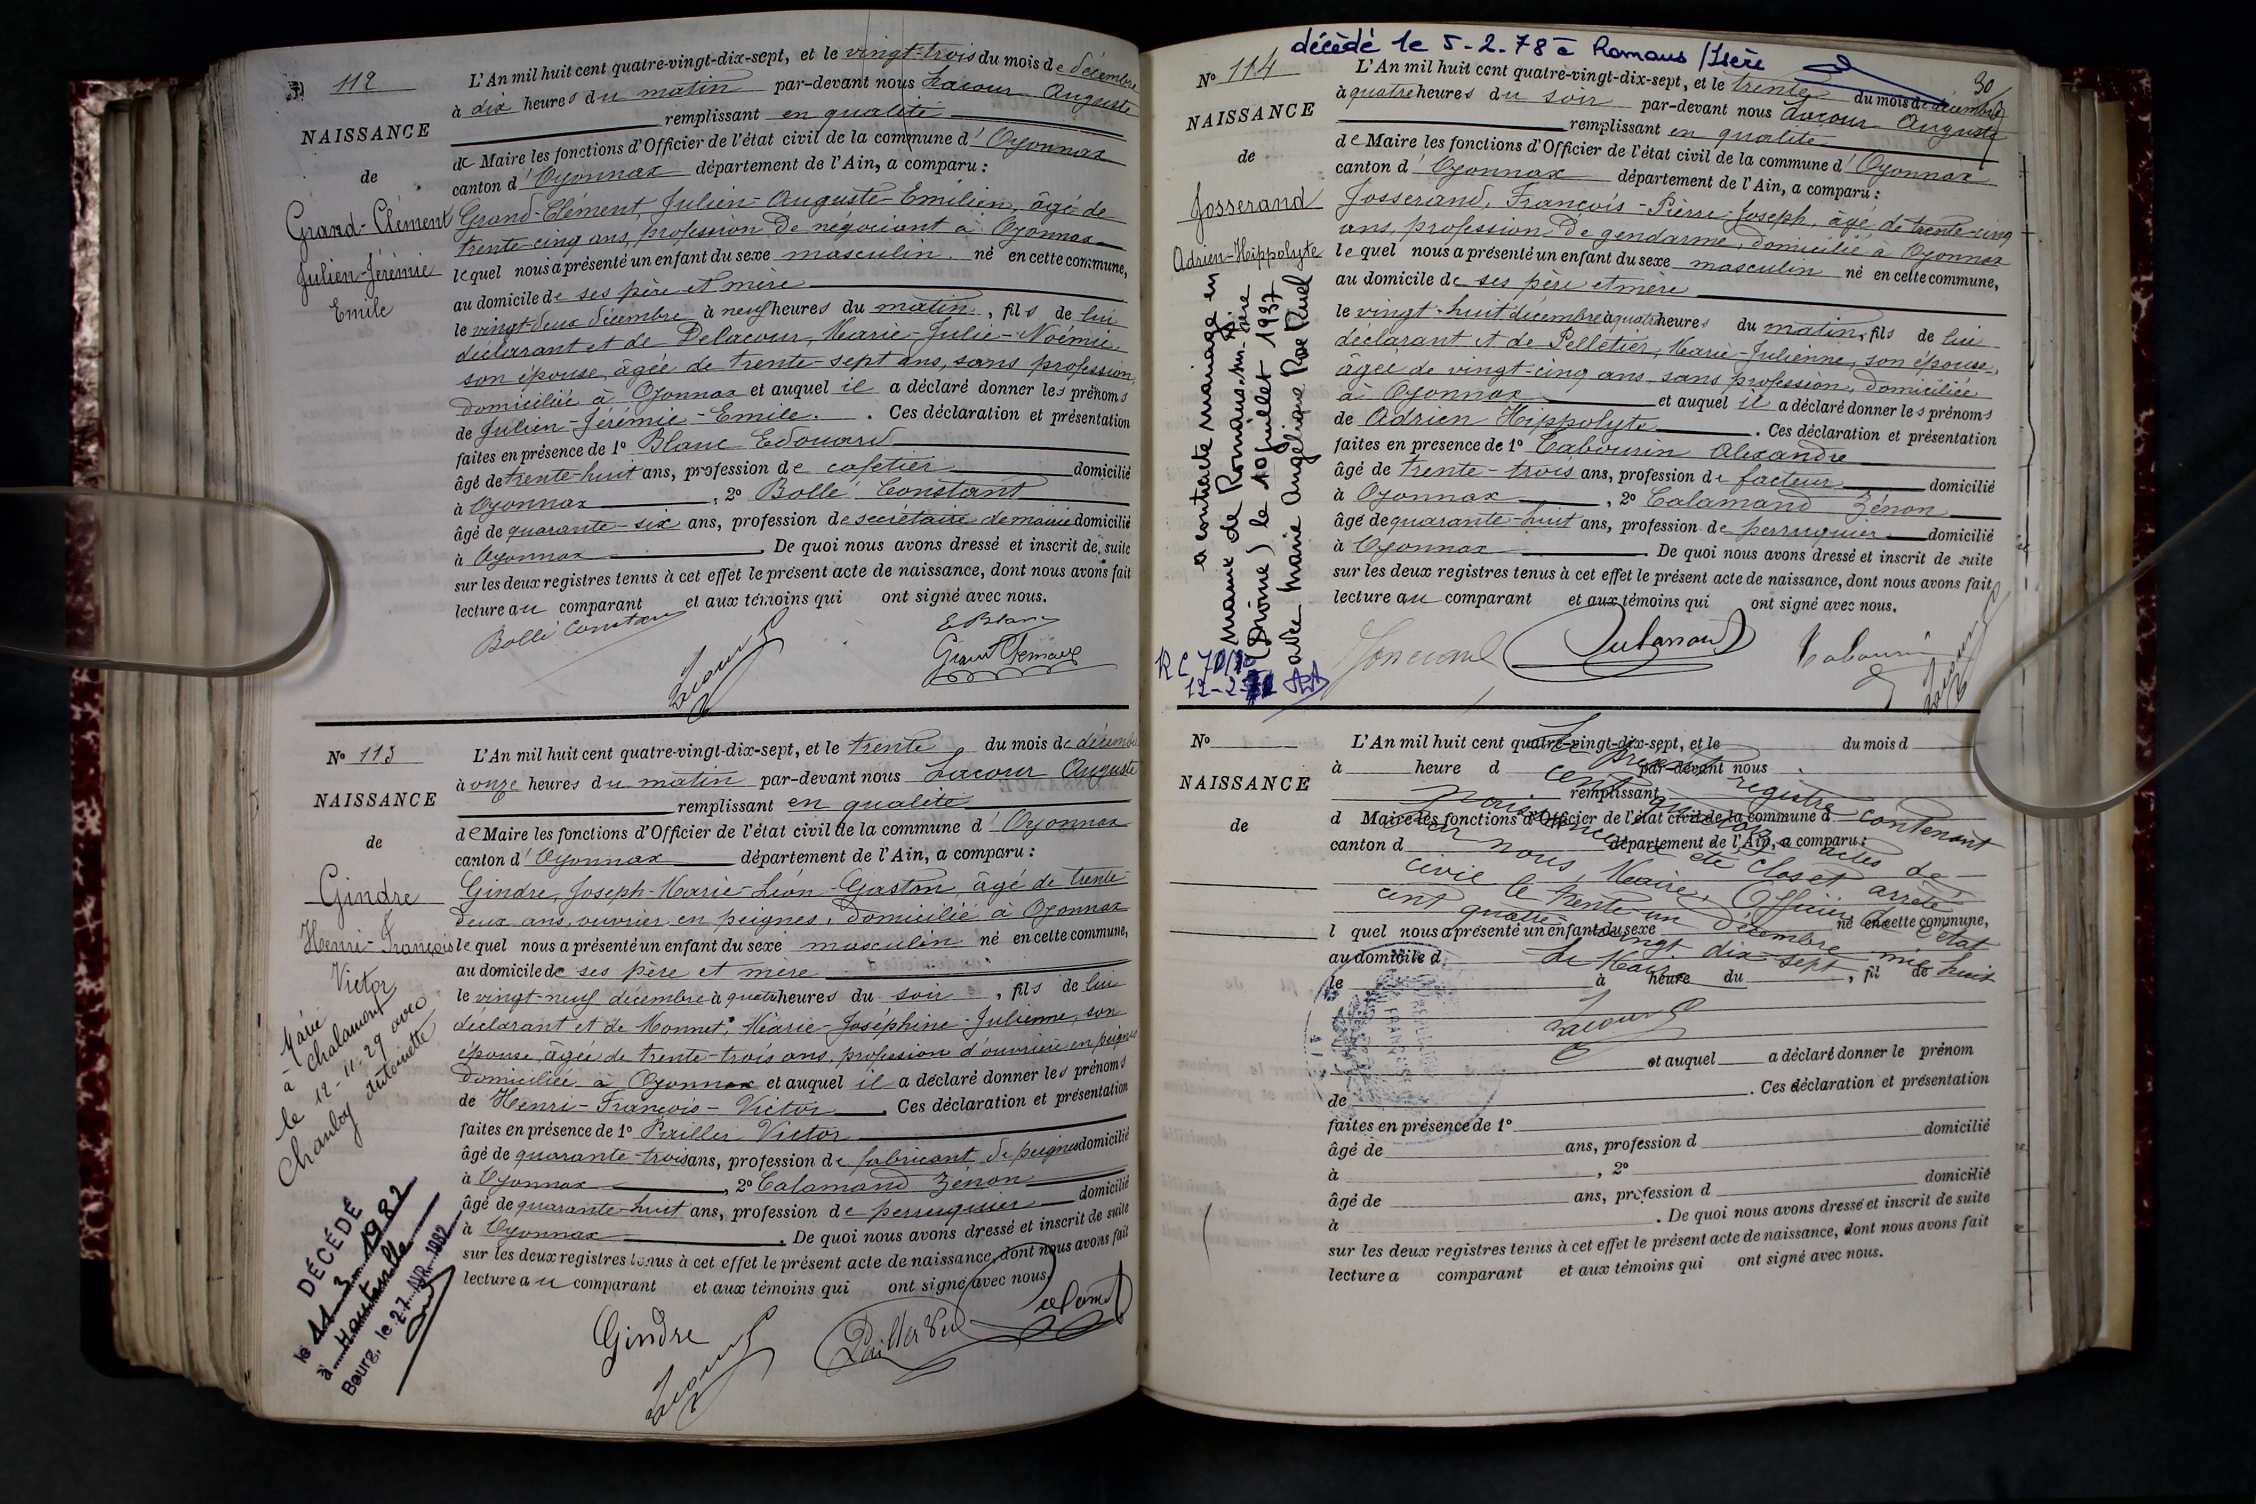 N° 112
NAISSANCE
de
Grand-Clément
Julien-Jérémie
Emile
L'An mil huit cent quatre-vingt-dix-sept, et le vingt-trois du mois de décembre
à dix heures du matin par-devant nous Lacour Auguste
remplissant en qualité
de Maire les fonctions d'Officier de l'état civil de la commune d'Oyonnax
canton d'Oyonnax département de l'Ain, a comparu :
Grand-Clément, Julien-Auguste-Emilien, âgé de
trente-cinq ans, profession de négociant à Oyonnax
lequel nous a présenté un enfant du sexe masculin né en cette commune,
au domicile de ses père et mère
le vingt-deux décembre à neuf heures du matin, fils de lui
déclarant et de Delacour, Marie-Julie-Noémie
son épouse, âgée de trente-sept ans, sans profession,
domiciliée à Oyonnax et auquel il a déclaré donner les prénoms
de Julien-Jérémie-Emile. Ces déclaration et présentation
faites en présence de 1° Blanc Edouard
âgé de trente-huit ans, profession de cafetier domicilié
à Oyonnax, 2° Bollé Constant
âgé de quarante-six ans, profession de secrétaire de mairie domicilié
à Oyonnax. De quoi nous avons dressé et inscrit de suite
sur les deux registres tenus à cet effet le présent acte de naissance, dont nous avons fait
lecture au comparant et aux témoins qui ont signé avec nous.
Bollé Constant
E Blanc
Lacour
N° 113
NAISSANCE
de
Gindre
Henri-François
Victor
Marié
à Chalamont
le 12-11-29 avec
Chanloy Antoinette
DÉCÉDÉ
le 11-3-1982
à Hauteville
Bourg, le 27 AVR. 1982
L'An mil huit cent quatre-vingt-dix-sept, et le trente du mois de décembre
à onze heures du matin par-devant nous Lacour Auguste
remplissant en qualité
de Maire les fonctions d'Officier de l'état civil de la commune d'Oyonnax
canton d'Oyonnax département de l'Ain, a comparu :
Gindre, Joseph-Marie-Léon-Gaston, âgé de trente
deux ans, ouvrier en peignes, domicilié à Oyonnax
lequel nous a présenté un enfant du sexe masculin né en cette commune,
au domicile de ses père et mère
le vingt-neuf décembre à quatre heures du soir, fils de lui
déclarant et de Monnet, Marie-Joséphine-Julienne, son
épouse, âgée de trente-trois ans, profession d'ouvrière en peignes
domiciliée à Oyonnax et auquel il a déclaré donner les prénoms
de Henri-François-Victor. Ces déclaration et présentation
faites en présence de 1° Pailler Victor
âgé de quarante-trois ans, profession de fabricant de peignes domicilié
à Oyonnax, 2° Calamand Zénon
âgé de quarante-huit ans, profession de perruquier domicilié
à Oyonnax. De quoi nous avons dressé et inscrit de suite
sur les deux registres tenus à cet effet le présent acte de naissance, dont nous avons fait
lecture au comparant et aux témoins qui ont signé avec nous.
Gindre
Lacour
30
décédé le 5-2-78 à Romans/Isère
N° 114
NAISSANCE
de
Josserand
Adrien-Hippolyte
a contracté mariage en
mairie de Romans-sur-Isère
(Drôme) le 10 juillet 1937
avec Marie Angélique Rose
L'An mil huit cent quatre-vingt-dix-sept, et le trente du mois de décembre
à quatre heures du soir par-devant nous Lacour Auguste
remplissant en qualité
de Maire les fonctions d'Officier de l'état civil de la commune d'Oyonnax
canton d'Oyonnax département de l'Ain, a comparu :
Josserand, François-Pierre-Joseph, âgé de trente-cinq
ans, profession de gendarme, domicilié à Oyonnax
lequel nous a présenté un enfant du sexe masculin né en cette commune,
au domicile de ses père et mère
le vingt-huit décembre à quatre heures du matin, fils de lui
déclarant et de Pelletier, Marie-Julienne, son épouse,
âgée de vingt-cinq ans, sans profession, domiciliée
à Oyonnax et auquel il a déclaré donner les prénoms
de Adrien Hippolyte. Ces déclaration et présentation
faites en présence de 1° Cabourin Alexandre
âgé de trente-trois ans, profession de facteur domicilié
à Oyonnax, 2° Calamand Zénon
âgé de quarante-huit ans, profession de perruquier domicilié
à Oyonnax. De quoi nous avons dressé et inscrit de suite
sur les deux registres tenus à cet effet le présent acte de naissance, dont nous avons fait
lecture au comparant et aux témoins qui ont signé avec nous.
N°
NAISSANCE
de
L'An mil huit cent quatre-vingt-dix-sept, et le du mois d
à heure d par-devant nous
remplissant
d Maire les fonctions d'Officier de l'état civil de la commune d
canton d département de l'Ain, a comparu :
l quel nous a présenté un enfant du sexe né en cette commune,
au domicile d
le à heure du, fil de
et auquel a déclaré donner le prénom
de. Ces déclaration et présentation
faites en présence de 1°
âgé de ans, profession d domicilié
à, 2°
âgé de ans, profession d domicilié
à. De quoi nous avons dressé et inscrit de suite
sur les deux registres tenus à cet effet le présent acte de naissance, dont nous avons fait
lecture a comparant et aux témoins qui ont signé avec nous.
Le présent registre contenant
cent quatorze actes de
naissance a été clos et arrêté
par nous, Maire, Officier de l'état
civil le trente-un décembre mil huit
cent quatre-vingt dix-sept
Le Maire
Lacour